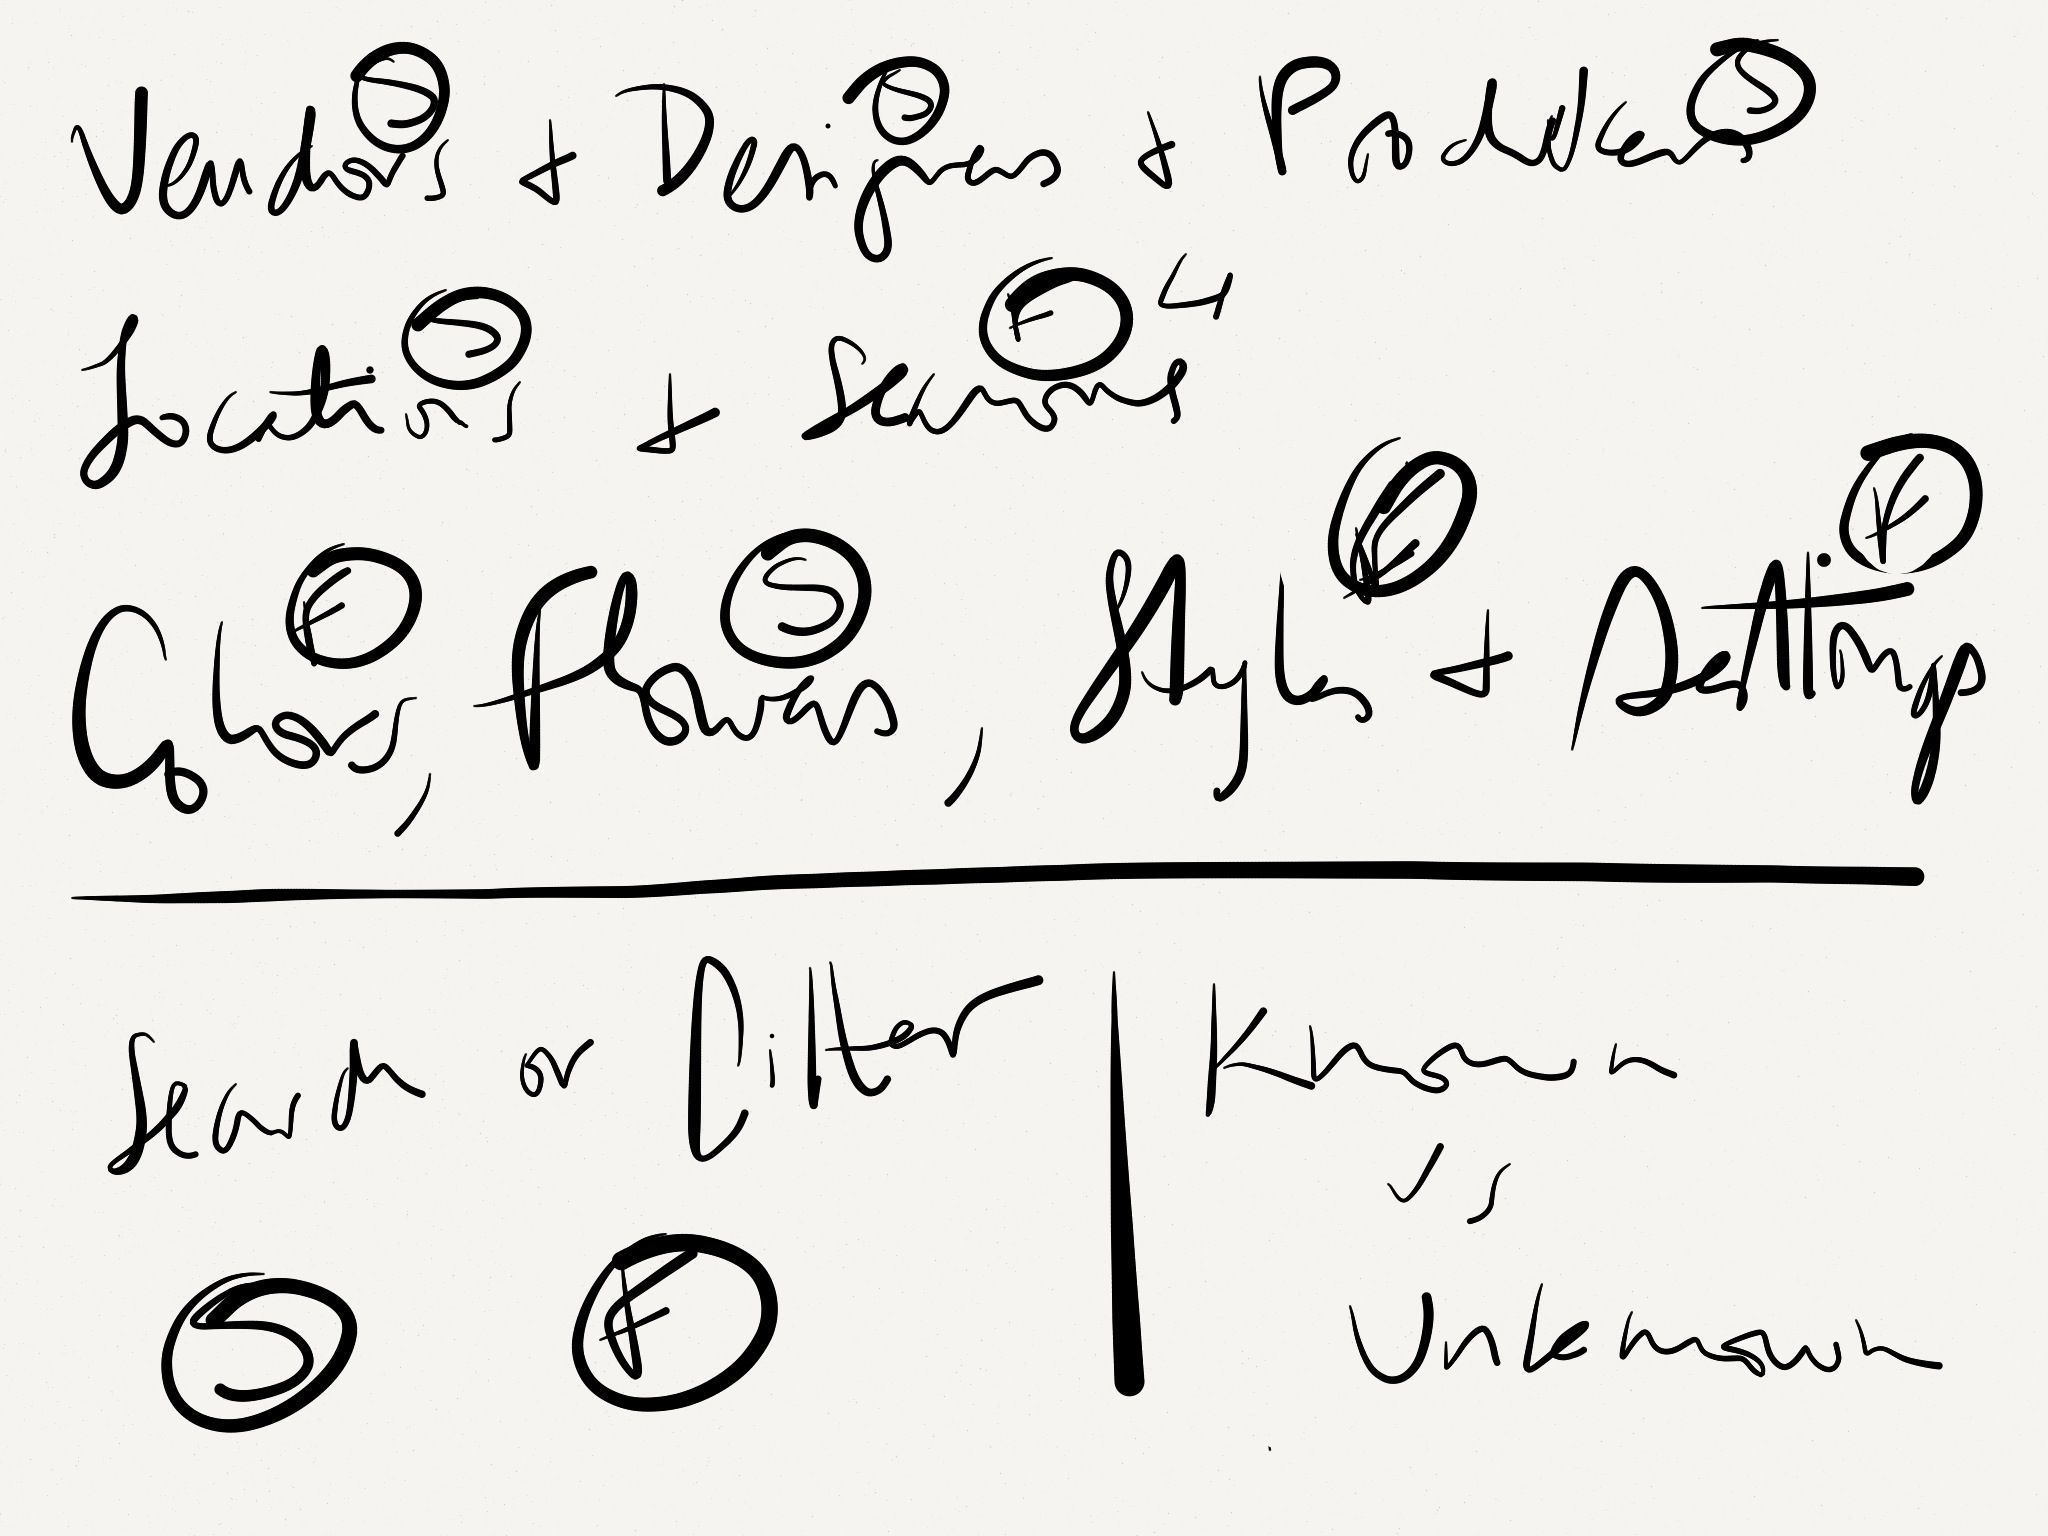 Vendors Ⓢ + Designers Ⓢ + Producers Ⓢ
Locations Ⓢ + Seasons Ⓕ 4
Colors Ⓕ, Flowers Ⓢ, Styles Ⓕ + Settings Ⓕ
Search or Filter
Ⓢ Ⓕ
Known
vs
Unknown